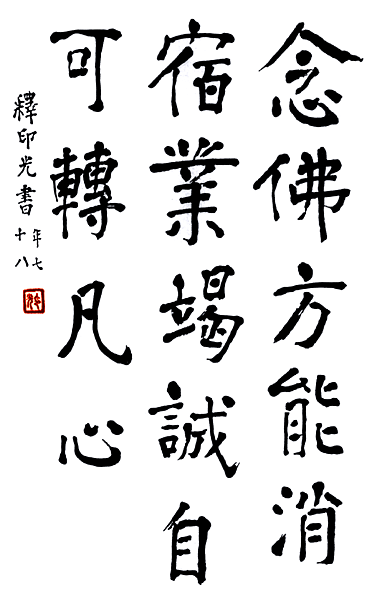 念佛方能消
宿業竭誠自
可轉凡心
釋印光書
年七
十八